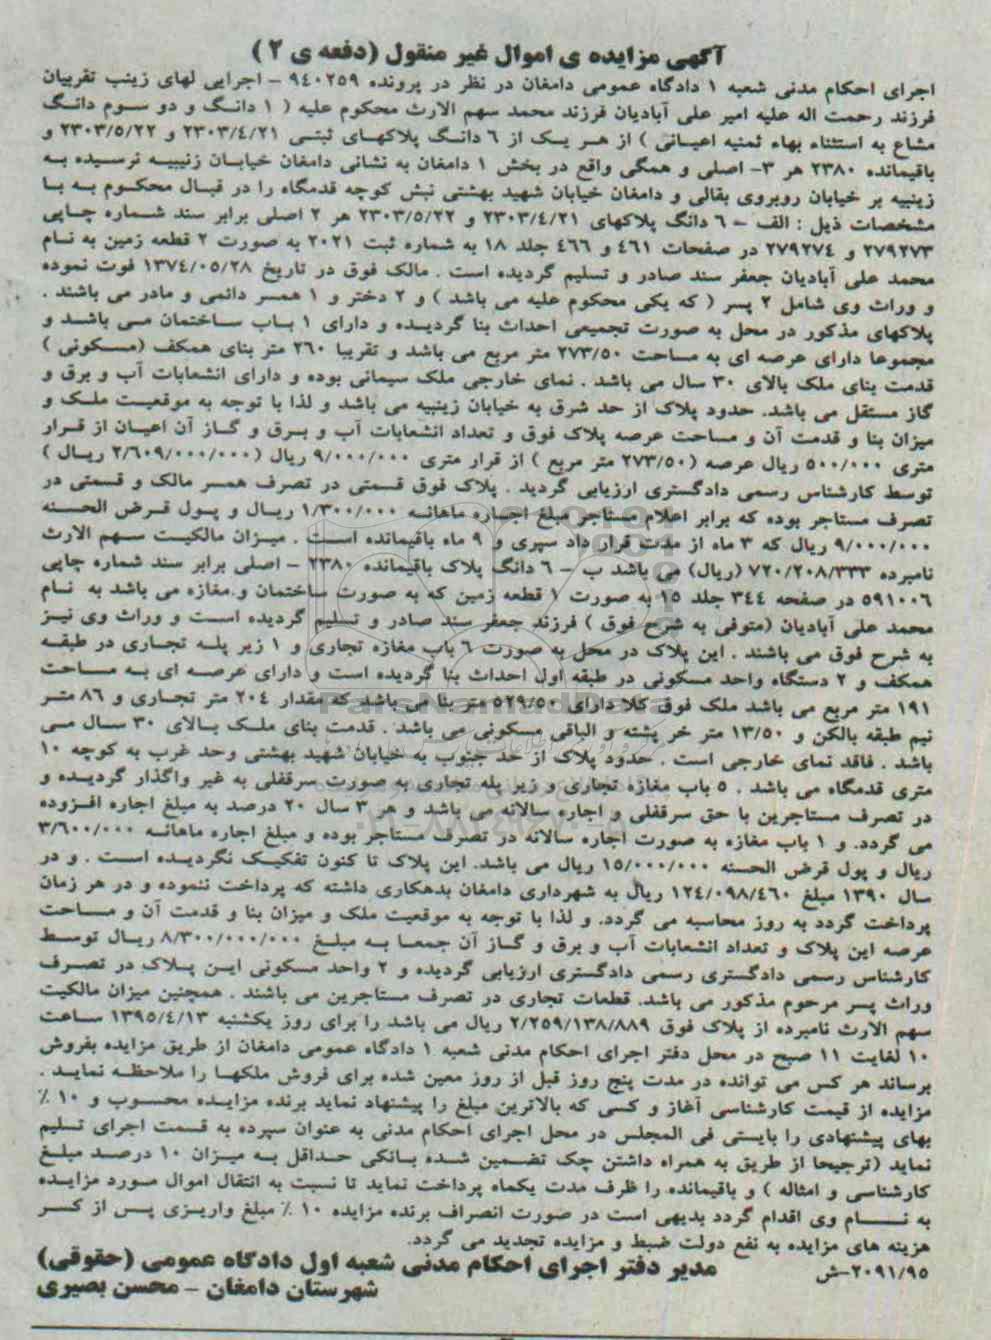 آگهی مزایده ی اموال غیر منقول (دفعه ی ۲)
اجرای احکام مدنی شعبه ۱ دادگاه عمومی دامغان در نظر در پرونده ۹۴۰۲۵۹ - اجرایی لهای زینب تقریبیان
فرزند رحمت اله علیه امیر علی آبادیان فرزند محمد سهم الارث محکوم علیه ( ۱ دانگ و دو سوم دانگ
مشاع به استثناء بهاء ثمنیه اعیانی ) از هر یک از ۶ دانگ پلاکهای ثبتی ۲۳۰۳/۴/۲۱ و ۲۳۰۳/۵/۲۲ و
باقیمانده ۲۳۸۰ هر ۳- اصلی و همگی واقع در بخش ۱ دامغان به نشانی دامغان خیابان زنیبیه نرسیده به
زینبیه بر خیابان روبروی بقالی و دامغان خیابان شهید بهشتی نبش کوچه قدمگاه را در قبال محکوم به با
مشخصات ذیل : الف - ۶ دانگ پلاکهای ۲۳۰۳/۴/۲۱ و ۲۳۰۳/۵/۲۲ هر ۲ اصلی برابر سند شماره چاپی
۲۷۹۲۷۳ و ۲۷۹۲۷۴ در صفحات ۴۶۱ و ۴۶۶ جلد ۱۸ به شماره ثبت ۲۰۲۱ به صورت ۲ قطعه زمین به نام
محمد علی آبادیان جعفر سند صادر و تسلیم گردیده است . مالک فوق در تاریخ ۱۳۷۴/۰۵/۲۸ فوت نموده
و وراث وی شامل ۲ پسر ( که یکی محکوم علیه می باشد ) و ۲ دختر و ۱ همسر دائمی و مادر می باشند .
پلاکهای مذکور در محل به صورت تجمیعی احداث بنا گردیده و دارای ۱ باب ساختمان می باشد و
مجموعا دارای عرصه ای به مساحت ۲۷۳/۵۰ متر مربع می باشد و تقریبا ۲۶۰ متر بنای همکف (مسکونی )
قدمت بنای ملک بالای ۳۰ سال می باشد . نمای خارجی ملک سیمانی بوده و دارای انشعابات آب و برق و
گاز مستقل می باشد. حدود پلاک از حد شرق به خیابان زینبیه می باشد و لذا با توجه به موقعیت ملک و
میزان بنا و قدمت آن و مساحت عرصه پلاک فوق و تعداد انشعابات آب و برق و گاز آن اعیان از قرار
متری ۵۰۰/۰۰۰ ریال عرصه (۲۷۳/۵۰ متر مربع ) از قرار متری ۹/۰۰۰/۰۰۰ ریال (۲/۶۰۹/۰۰۰/۰۰۰ ریال )
توسط کارشناس رسمی دادگستری ارزیابی گردید . پلاک فوق قسمتی در تصرف همسر مالک و قسمتی در
تصرف مستاجر بوده که برابر اعلام مستاجر مبلغ اجاره ماهانه ۱/۳۰۰/۰۰۰ ریال و پول قرض الحسنه
۹/۰۰۰/۰۰۰ ریال که ۳ ماه از مدت قرار داد سپری و ۹ ماه باقیمانده است . میزان مالکیت سهم الارث
نامبرده ۷۲۰/۲۰۸/۳۳۳ (ریال) می باشد ب - ۶ دانگ پلاک باقیمانده ۲۳۸۰ - اصلی برابر سند شماره چاپی
۵۹۱۰۰۶ در صفحه ۳۴۴ جلد ۱۵ به صورت ۱ قطعه زمین که به صورت ساختمان و مغازه می باشد به نام
محمد علی آبادیان (متوفی به شرح فوق ) فرزند جعفر سند صادر و تسلیم گردیده است و وراث وی نیز
به شرح فوق می باشند . این پلاک در محل به صورت ۶ باب مغازه تجاری و ۱ زیر پله تجاری در طبقه
همکف و ۲ دستگاه واحد مسکونی در طبقه اول احداث بنا گردیده است و دارای عرصه ای به مساحت
۱۹۱ متر مربع می باشد ملک فوق کلا دارای ۵۲۹/۵۰ متر بنا می باشد که مقدار ۲۰۴ متر تجاری و ۸۶ متر
نیم طبقه بالکن و ۱۳/۵۰ متر خر پشته و الباقی مسکونی می باشد . قدمت بنای ملک بالای ۳۰ سال می
باشد . فاقد نمای خارجی است . حدود پلاک از حد جنوب به خیابان شهید بهشتی وحد غرب به کوچه ۱۰
متری قدمگاه می باشد . ۵ باب مغازه تجاری و زیر پله تجاری به صورت سرقفلی به غیر واگذار گردیده و
در تصرف مستاجرین با حق سرقفلی و اجاره سالانه می باشد و هر ۳ سال ۲۰ درصد به مبلغ اجاره افزوده
می گردد. و ۱ باب مغازه به صورت اجاره سالانه در تصرف مستاجر بوده و مبلغ اجاره ماهانه ۳/۶۰۰/۰۰۰
ریال و پول قرض الحسنه ۱۵/۰۰۰/۰۰۰ ریال می باشد. این پلاک تا کنون تفکیک نگردیده است . و در
سال ۱۳۹۰ مبلغ ۱۲۴/۰۹۸/۴۶۰ ریال به شهرداری دامغان بدهکاری داشته که پرداخت ننموده و در هر زمان
پرداخت گردد به روز محاسبه می گردد. و لذا با توجه به موقعیت ملک و میزان بنا و قدمت آن و مساحت
عرصه این پلاک و تعداد انشعابات آب و برق و گاز آن جمعا به مبلغ ۸/۳۰۰/۰۰۰/۰۰۰ ریال توسط
کارشناس رسمی دادگستری رسمی دادگستری ارزیابی گردیده و ۲ واحد مسکونی این پلاک در تصرف
وراث پسر مرحوم مذکور می باشد. قطعات تجاری در تصرف مستاجرین می باشند . همچنین میزان مالکیت
سهم الارث نامبرده از پلاک فوق ۲/۲۵۹/۱۳۸/۸۸۹ ریال می باشد را برای روز یکشنبه ۱۳۹۵/۴/۱۳ ساعت
۱۰ لغایت ۱۱ صبح در محل دفتر اجرای احکام مدنی شعبه ۱ دادگاه عمومی دامغان از طریق مزایده بفروش
برساند هر کس می توانده در مدت پنج روز قبل از روز معین شده برای فروش ملکها را ملاحظه نماید .
مزایده از قیمت کارشناسی آغاز و کسی که بالاترین مبلغ را پیشنهاد نماید برنده مزایده محسوب و ۱۰ ٪
بهای پیشنهادی را بایستی فی المجلس در محل اجرای احکام مدنی به عنوان سپرده به قسمت اجرای تسلیم
نماید (ترجیحا از طریق به همراه داشتن چک تضمین شده بانکی حداقل به میزان ۱۰ درصد مبلغ
کارشناسی و امثاله ) و باقیمانده را ظرف مدت یکماه پرداخت نماید تا نسبت به انتقال اموال مورد مزایده
به نام وی اقدام گردد بدیهی است در صورت انصراف برنده مزایده ۱۰ ٪ مبلغ واریزی پس از کسر
هزینه های مزایده به نفع دولت ضبط و مزایده تجدید می گردد.
۲۰۹۱/۹۵-ش
مدیر دفتر اجرای احکام مدنی شعبه اول دادگاه عمومی (حقوقی)
شهرستان دامغان - محسن بصیری
ParsNamadData